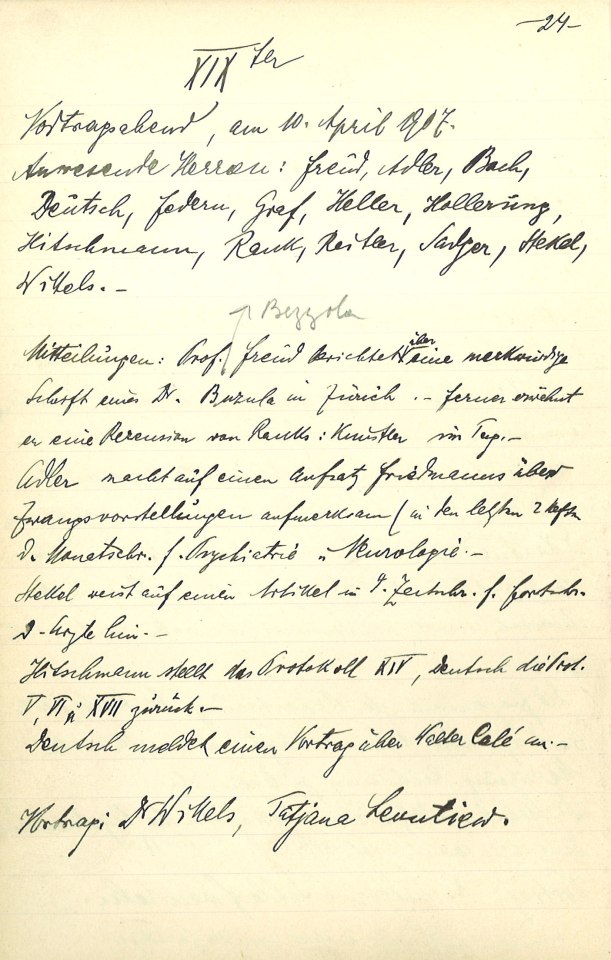 -24-
XIXter
Vortragsabend, am 10. April 1907.
Anwesende Herren: Freud, Adler, Bach,
Deutsch, Federn, Graf, Heller, Hollerung,
Hitschmann, Rank, Reitler, Sadger, Stekel,
Wittels. -
Bezzola
Mitteilungen: Prof. Freud berichtet über eine merkwürdige
Schrift eines Dr. Buzula in Zürich. - Ferner erwähnt
er eine Rezension von Ranks: Künstler im Tag. -
Adler macht auf einen Aufsatz Friedmanns über
Zwangsvorstellungen aufmerksam (in den letzten 2 Heften
d. Monatschr. f. Psychiatrie u Neurologie. -
Stekel weist auf einen Artikel in d. Zeitschr. f. fortschr.
D. Ärzte hin. -
Hitschmann stellt das Protokoll XIV, Deutsch die Prot.
V, VI u XVII zurück. -
Deutsch meldet einen Vortrag über Walter Calé an. -
Vortrag: Dr Wittels, Tatjana Leontiew.